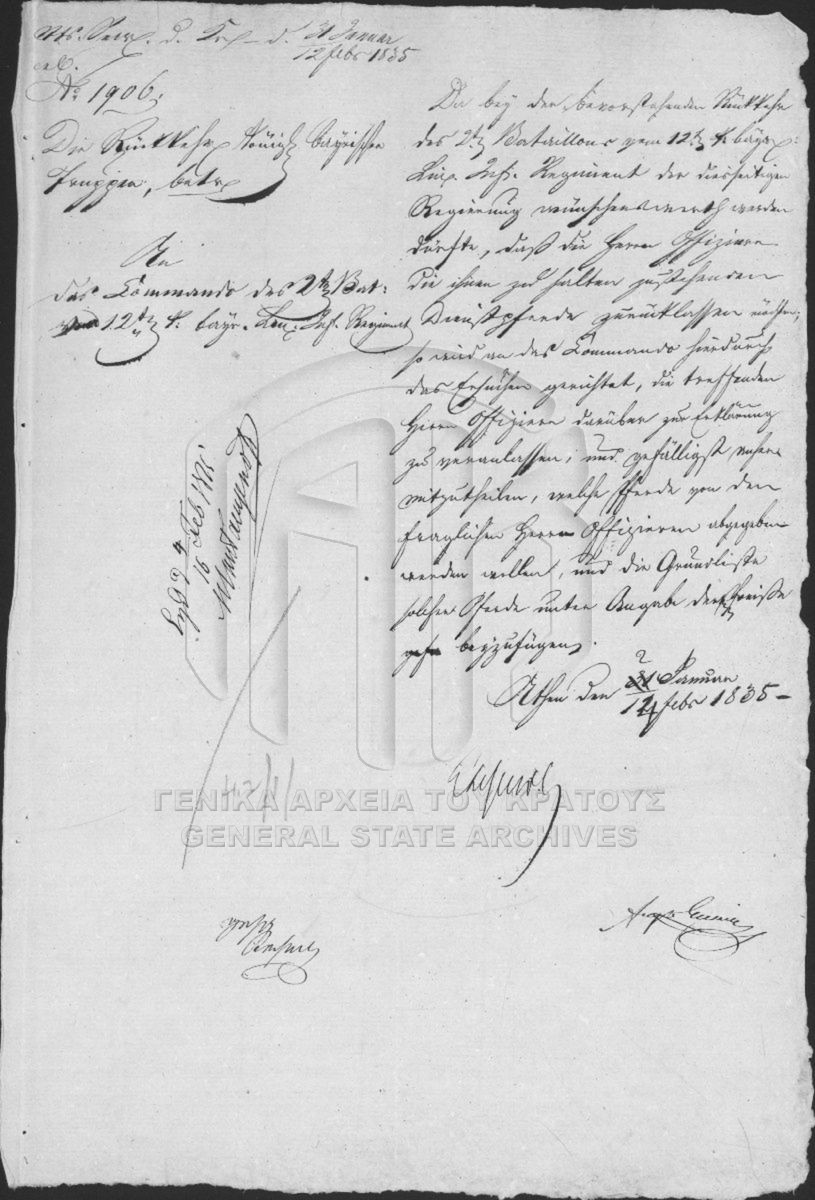 31 Januar
12 febr 1835
No 1906.
Die Rückkehr Königl. bayrischer
Truppen, betr.
An
das Commando des 2ten Bat:
12ten k. bayr. Lin. Inf. Regiment
Da bey der bevorstehenden Rückkehr
des 2ten Bataillons vom 12ten k. bayr.
Lin. Inf. Regiment der diesseitigen
Regierung wünschenswerth werden
dürfte, daß die Herrn Offiziere
die ihnen zu halten zustehenden
Dienstpferde zurücklassen möchten,
so wird an das Commando hierdurch
das Ersuchen gerichtet, die treffenden
Herrn Offiziere darüber zur Erklärung
zu veranlassen, und gefälligst anher
mitzutheilen, welche Pferde von den
fraglichen Herrn Offizieren abgegeben
werden wollen, und die Grundliste
solcher Pferde unter Angabe der Preiße
beyzufügen.
Athen den 31 Januar
12 febr 1835
16 Feb 1835
ΓΕΝΙΚΑ ΑΡΧΕΙΑ ΤΟΥ ΚΡΑΤΟΥΣ
GENERAL STATE ARCHIVES